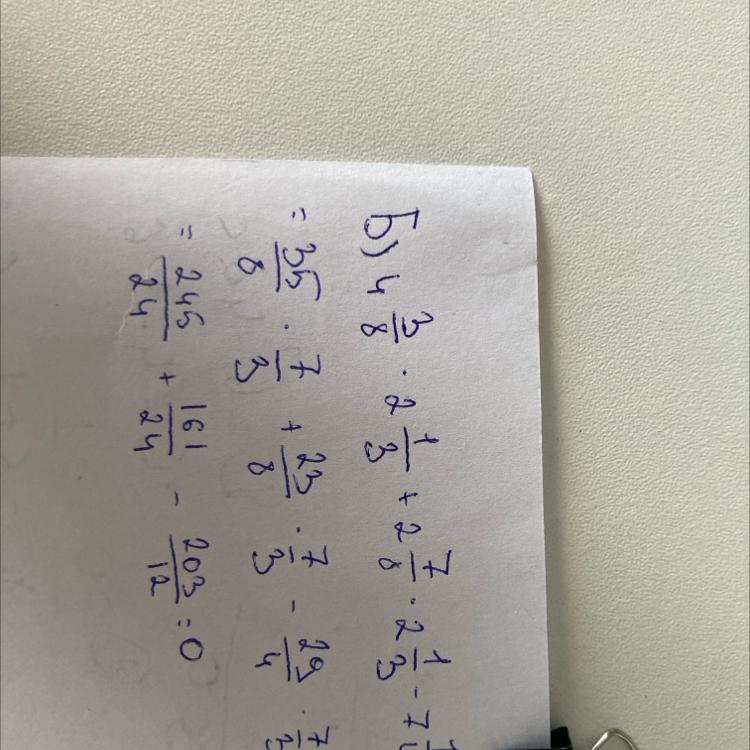 Б) 4 3/8 · 2 1/3 + 2 7/8 · 2 1/3 - 7
= 35/8 · 7/3 + 23/8 · 7/3 - 29/4 · 7/
= 245/24 + 161/24 - 203/12 = 0